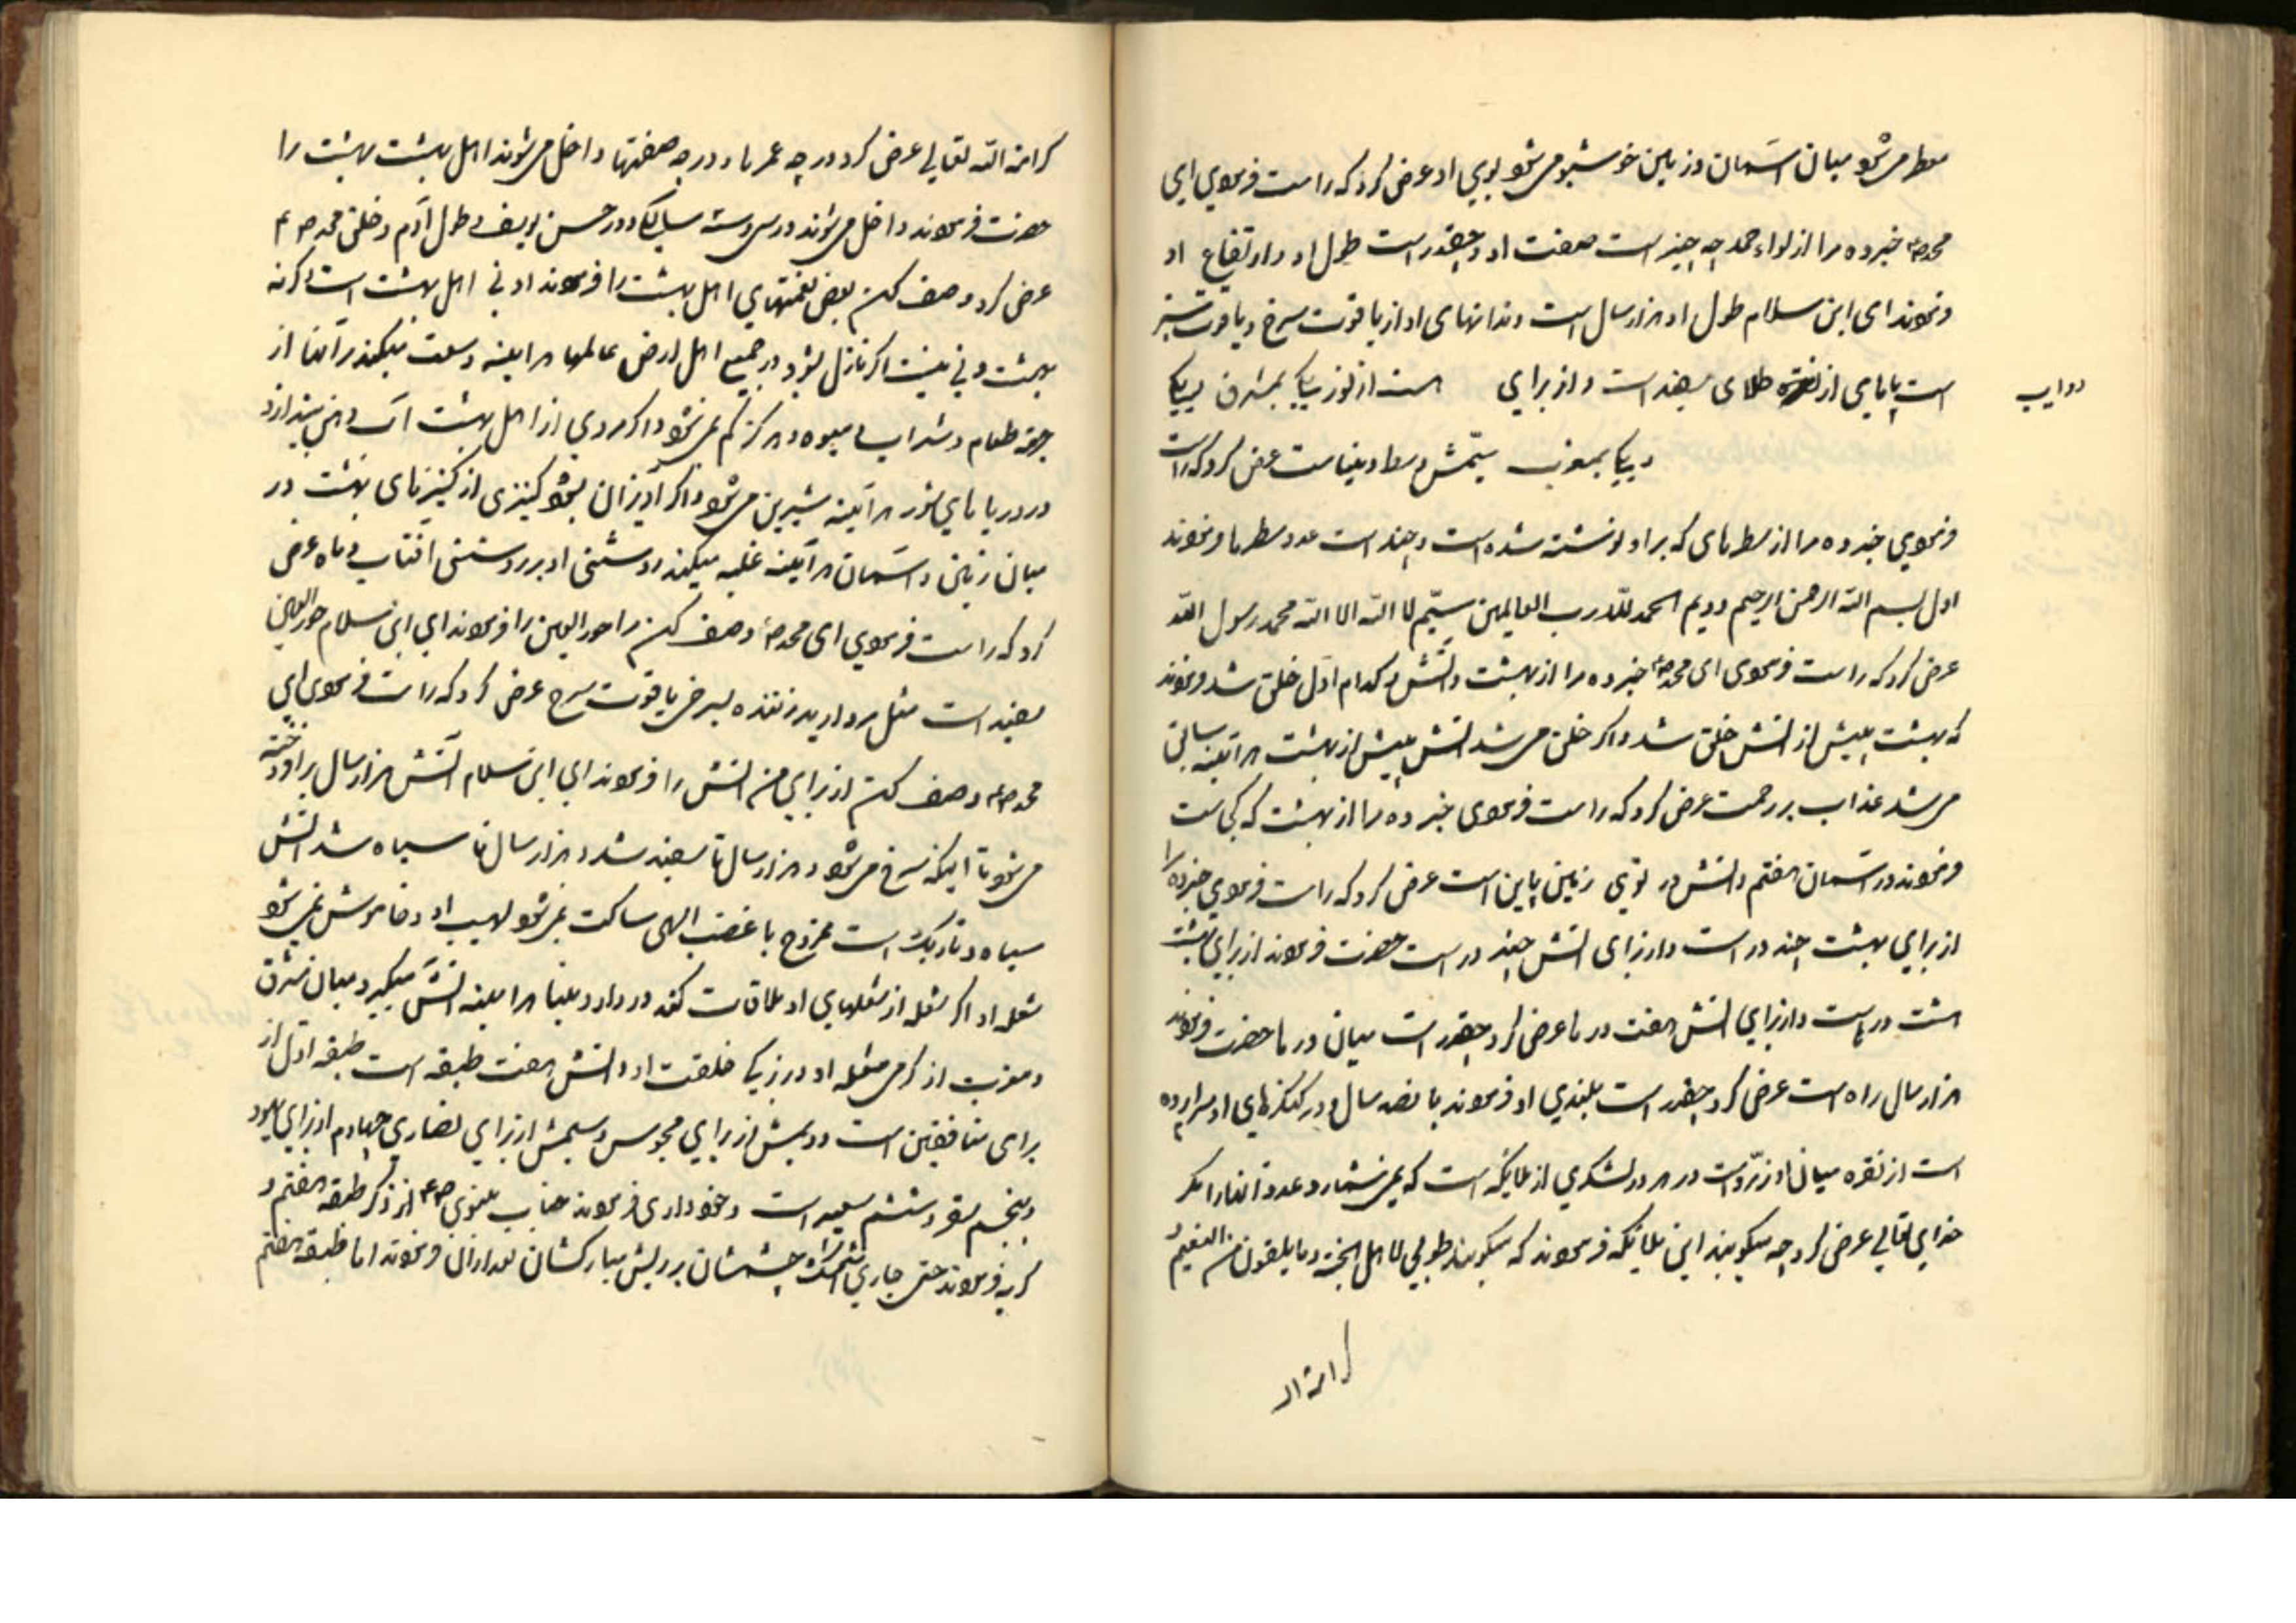 معطر می‌شود میان آسمان و زمین خوشبو می‌شود بوی او عرض کرد که راست فرمودی ای
محمد ص خبر ده مرا از لواء حمد چه چیز است صفت او و چقدر است طول او و ارتفاع او
فرمودند ای ابن سلام طول او هزار سال است دندانهای او از یاقوت سرخ و یاقوت سبز
است پایهای از نقره طلای سفید است و از برای است از نور یکی بمشرق و یکی
دوایب
و یکی بمغرب سیمش وسط دنیاست عرض کرد که راست
فرمودی خبر ده مرا از سطرهای که بر او نوشته شده است و چند است عدد سطرها فرمودند
اول بسم الله الرحمن الرحیم دویم الحمد لله رب العالمین سیم لا اله الا الله محمد رسول الله
عرض کرد که راست فرمودی ای محمد ص خبر ده مرا از بهشت و آتش که کدام اول خلق شد فرمودند
که بهشت پیش از آتش خلق شد و اگر خلق می‌شد آتش پیش از بهشت هر آینه سابق
می‌شد عذاب بر رحمت عرض کرد که راست فرمودی خبر ده مرا از بهشت که کجاست
فرمودند در آسمان هفتم و آتش در توی زمین پاین است عرض کرد که راست فرمودی خبر ده مرا
از برای بهشت چند در است و از برای آتش چند در است حضرت فرمودند از برای بهشت
هشت در است و از برای آتش هفت در ها عرض کرد چقدر است میان در ها حضرت فرمودند
هزار سال راه است عرض کرد چقدر است بلندی او فرمودند پانصد سال و در کنگرهای او سراپرده
است از نقره میان او زمرد است در هر در لشکری از ملائکه است که نمی‌شمارد عدد آنها را مگر
خدای تعالی عرض کرد چه میگویند این ملائکه فرمودند که میگویند طوبی لاهل الجنة و ما یلقون من النعیم
کرامة الله
کرامة الله تعالی عرض کرد در چه عمرها و در چه صفتها داخل می‌شوند اهل بهشت بهشت را
حضرت فرمودند داخل می‌شوند در سی و سه سالگی و در حسن یوسف و طول آدم و خلق محمد ص
عرض کرد وصف کن بعض نعمتهای اهل بهشت را فرمودند ادنی اهل بهشت است و گرنه
بهشت دنی نیست اگر نازل بشود بر جمیع اهل ارض عالمها هر آینه وسعت میکند بر آنها از
جهة طعام و شراب و میوه و هرگز کم نمی‌شود و اگر مردی از اهل بهشت آب دهن بیندازد
در دریاهای شور هر آینه شیرین می‌شود و اگر آویزان بشود کنیزی از کنیزهای بهشت در
میان زمین و آسمان هر آینه غلبه میکند روشنی او بر روشنی آفتاب و ماه عرض
کرد که راست فرمودی ای محمد ص وصف کن مرا حور العین را فرمودند ای ابن سلام حور العین
سفید است مثل مروارید زننده بسرخی یاقوت سرخ عرض کرد که راست فرمودی ای
محمد ص وصف کن از برای من آتش را فرمودند ای ابن سلام آتش هزار سال بر افروخته
می‌شود تا اینکه سرخ می‌شود و هزار سال تا سفید شد و هزار سال تا سیاه شد آتش
سیاه و تاریک است ممزوج با غضب الهی ساکت نمی‌شود لهیب او و خاموش نمی‌شود
شعله او اگر شعله از شعلهای او ملاقات کند در دار دنیا هر آینه آتش میگیرد میان مشرق
و مغرب از گرمی شعله او و بزرگی خلقت او و آتش هفت طبقه است طبقه اول از
برای منافقین است دویمش از برای مجوس و سیمش از برای نصاری چهارم از برای یهود
و پنجم سقر و ششم سعیر است و خودداری فرمودند جناب نبوی ص از ذکر طبقه هفتم و
گریه فرمودند حتی جاری شد اشک چشمشان بر ریش مبارکشان بعد از آن فرمودند اما طبقه هفتم